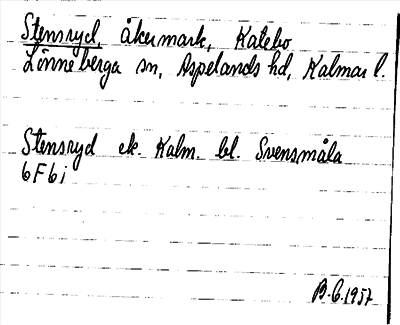 Stensryd, åkermark, Katebo
Lönneberga sn, Aspelands hd, Kalmar l.
Stensryd ek. Kalm. bl. Svensmåla
6F6i
B.G. 1957